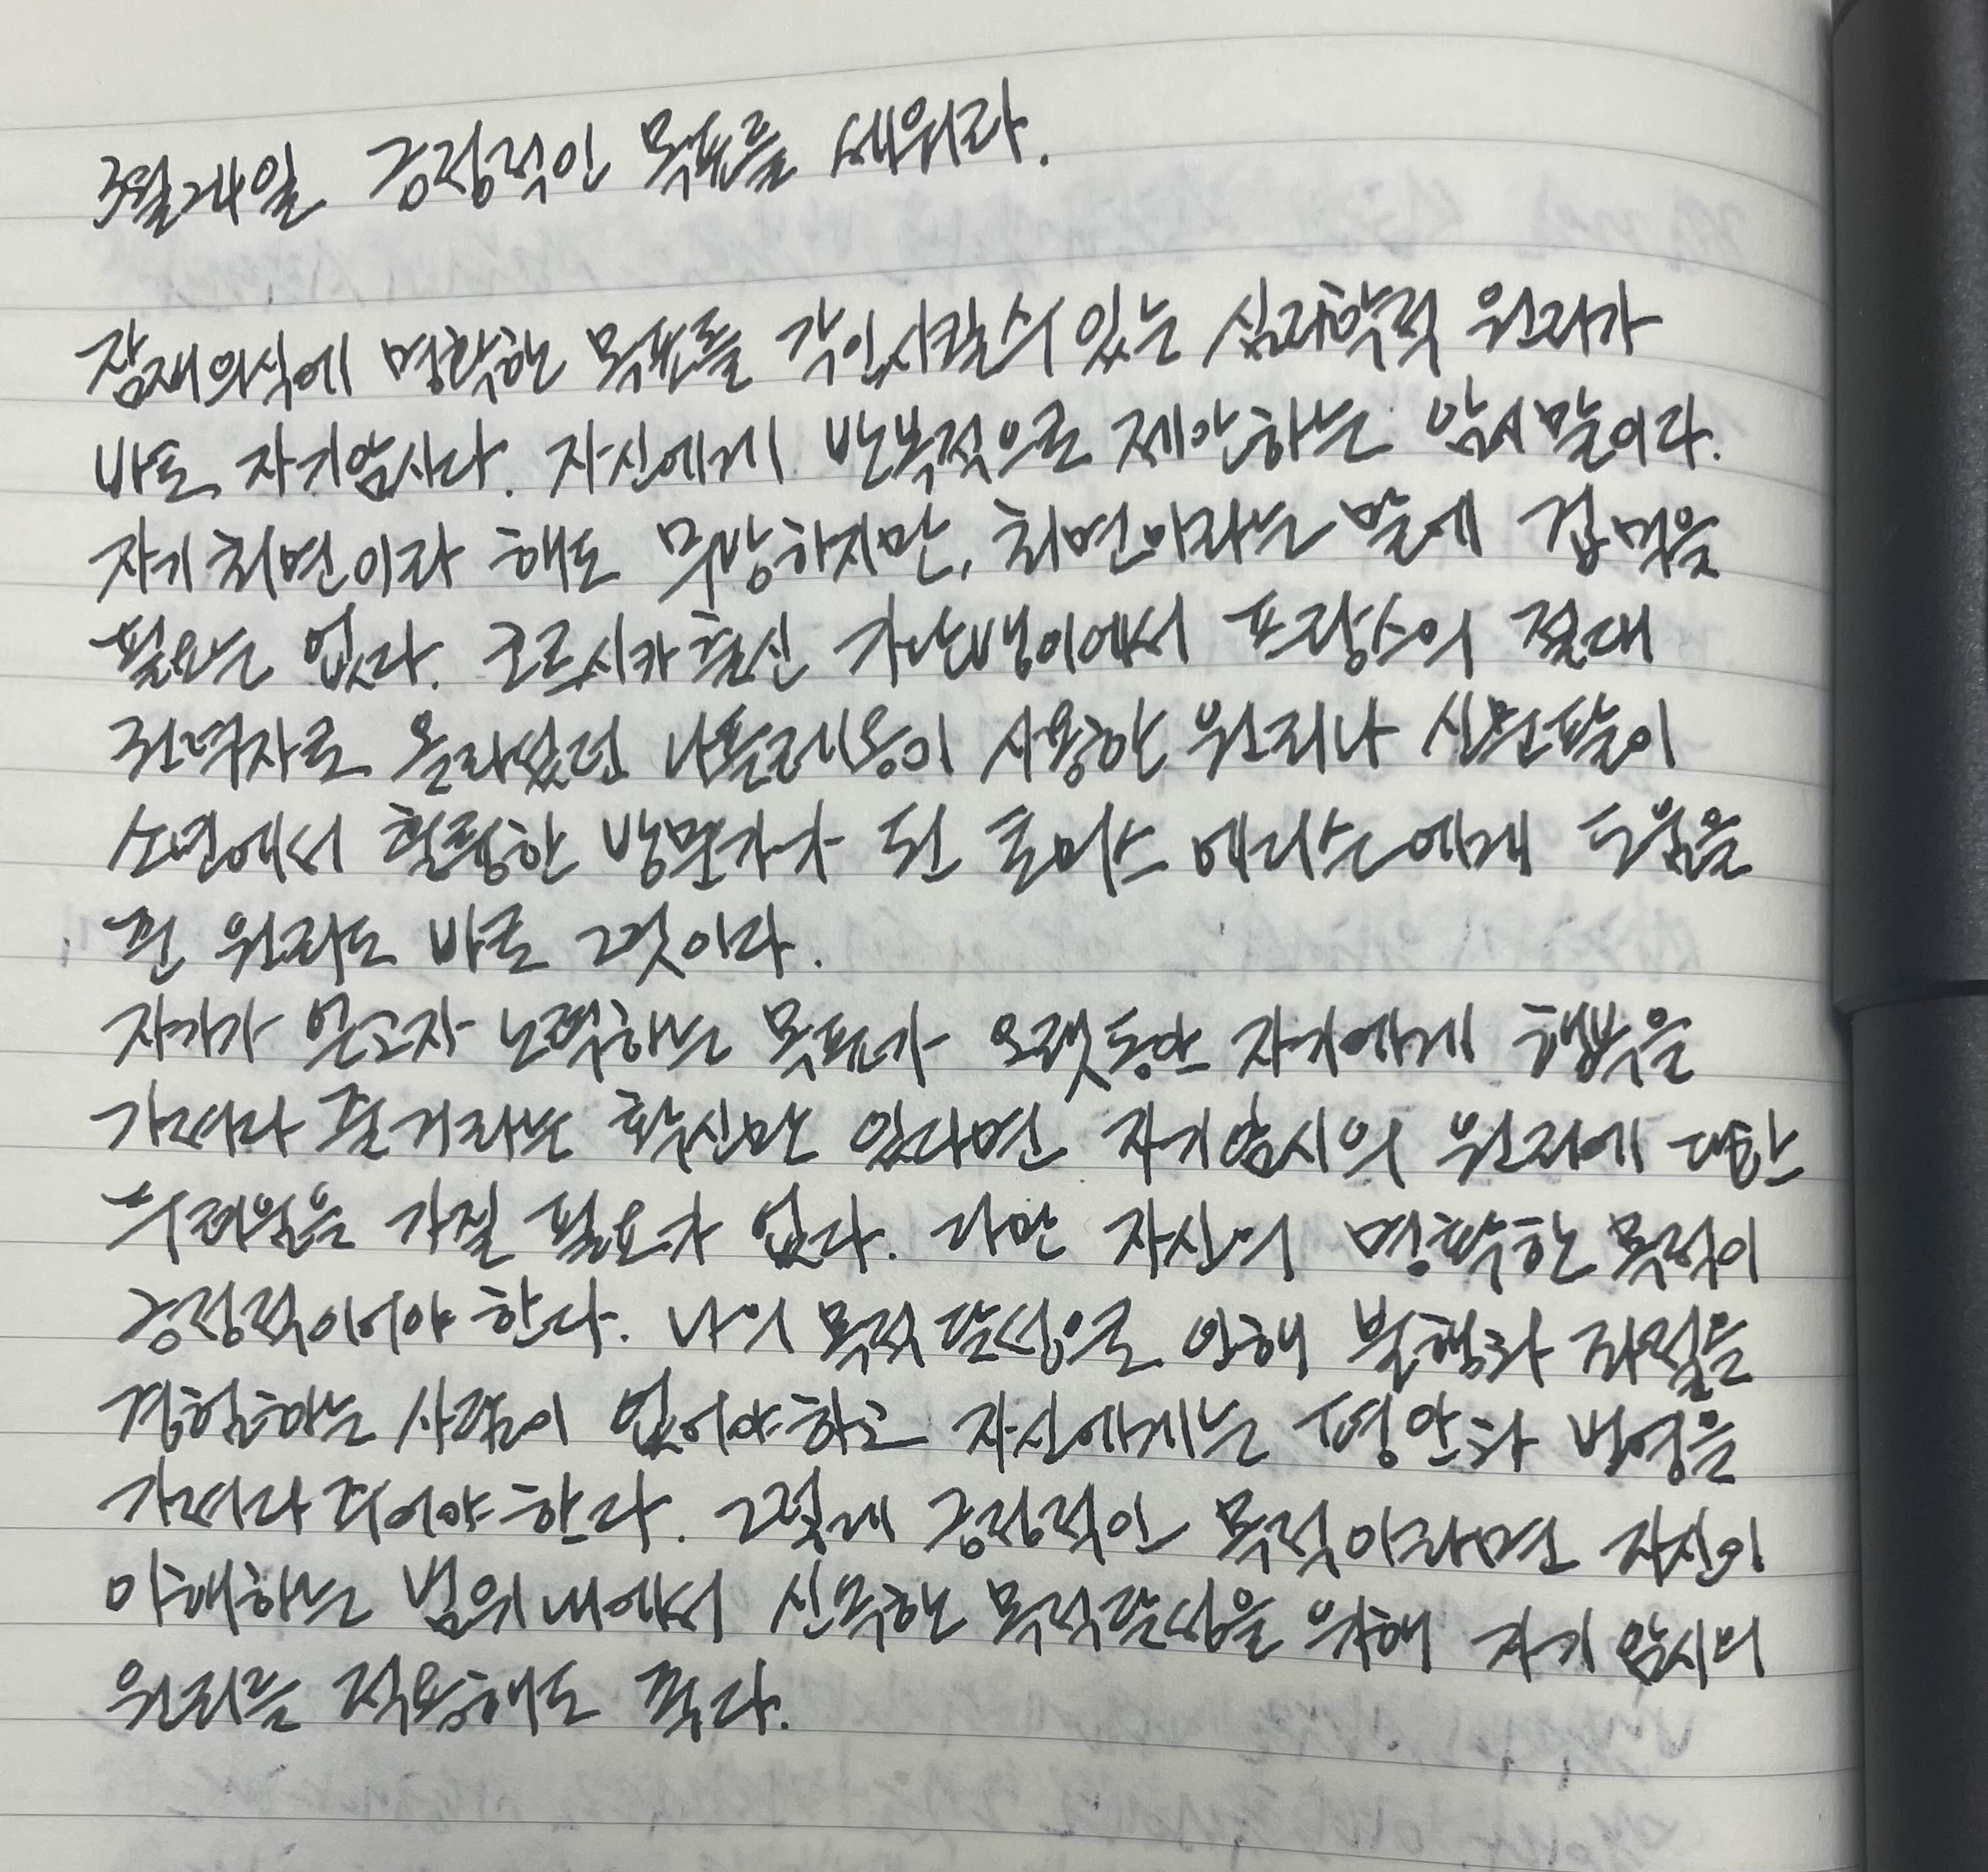 3월 24일 긍정적인 목표를 세워라.
잠재의식에 명확한 목표를 각인시킬수 있는 심리학적 원리가
바로 자기암시다. 자신에게 반복적으로 제안하는 암시 말이다.
자기최면이라 해도 무방하지만, 최면이라는 말에 겁먹을
필요는 없다. 코르시카 출신 가난뱅이에서 프랑스의 절대
권력자로 올라섰던 나폴레옹이 사용한 원리나 신문팔이
소년에서 훌륭한 발명가가 된 토머스 에디슨에게 도움을
준 원리도 바로 그것이다.
자기가 얻고자 노력하는 목표가 오랫동안 자기에게 행복을
가져다 줄거라는 확신만 있다면 자기암시의 원리에 대한
두려움을 가질 필요가 없다. 다만 자신의 명확한 목적이
긍정적이어야 한다. 나의 목적 달성으로 인해 불행과 좌절을
경험하는 사람이 없어야하고 자신에게는 평안과 번영을
가져다 주어야 한다. 그렇게 긍정적인 목적이라면 자신이
이해하는 범위내에서 신속한 목적달성을 위해 자기 암시의
원리를 적용해도 좋다.